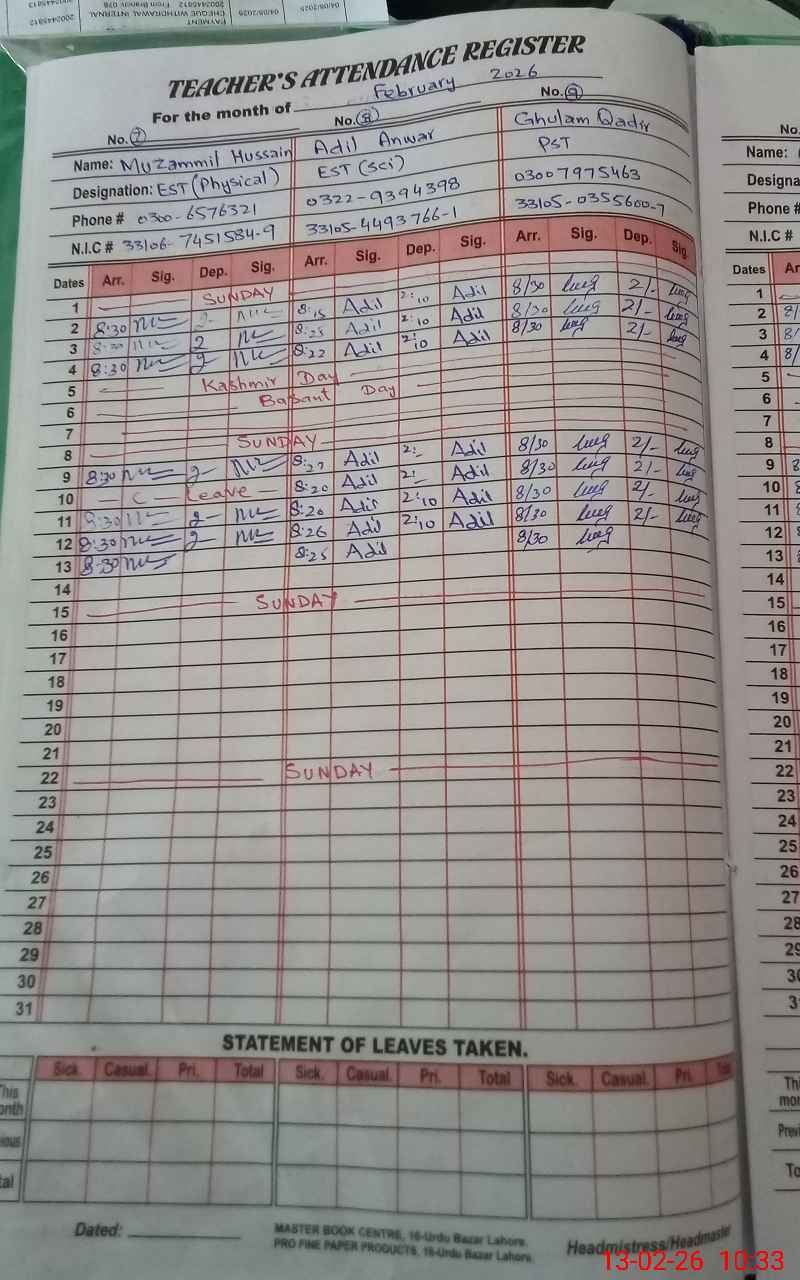 TEACHER'S ATTENDANCE REGISTER
For the month of February 2026
No. 7 No. 8 No. 9
Name: Muzammil Hussain Adil Anwar Ghulam Qadir
Designation: EST (Physical) EST (Sci) PST
Phone # 0300-6576321 0322-9394398 03007975463
N.I.C # 33106-7451584-9 33105-4493766-1 33105-0355600-7
Dates Arr. Sig. Dep. Sig. Arr. Sig. Dep. Sig. Arr. Sig. Dep. Sig.
1 SUNDAY
2 8:30 2- 8:15 Adil 2:10 Adil 8/30 2/-
3 8:30 2 8:25 Adil 2:10 Adil 8/30 2/-
4 8:30 2- 8:22 Adil 2:10 Adil 8/30 2/-
5 Kashmir Day
6 Basant Day
7
8 SUNDAY
9 8:30 2- 8:27 Adil 2:- Adil 8/30 2/-
10 C- Leave 8:20 Adil 2: Adil 8/30 2/-
11 8:30 2- 8:20 Adil 2:10 Adil 8/30 2/-
12 8:30 2- 8:26 Adil 2:10 Adil 8/30 2/-
13 8:30 8:25 Adil 8/30
14
15 SUNDAY
16
17
18
19
20
21
22 SUNDAY
23
24
25
26
27
28
29
30
31
STATEMENT OF LEAVES TAKEN.
Sick. Casual. Pri. Total Sick. Casual. Pri. Total Sick. Casual. Pri.
Dated:
MASTER BOOK CENTRE, 16-Urdu Bazar Lahore.
PRO FINE PAPER PRODUCTS, 16-Urdu Bazar Lahore.
Headmistress/Headmaster
13-02-26 10:33